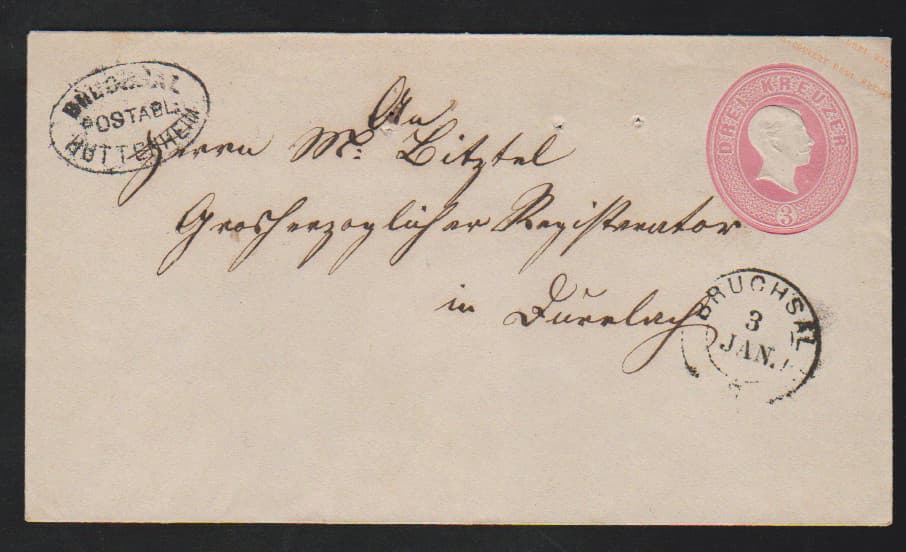 BRUCHSAL
POSTABL.
RUTTENHEIM
DREI KREUZER
3
An
Herrn M. Bitztel
Grosherzoglicher Registrator
in Durrlach
BRUCHSAL
3
JAN.